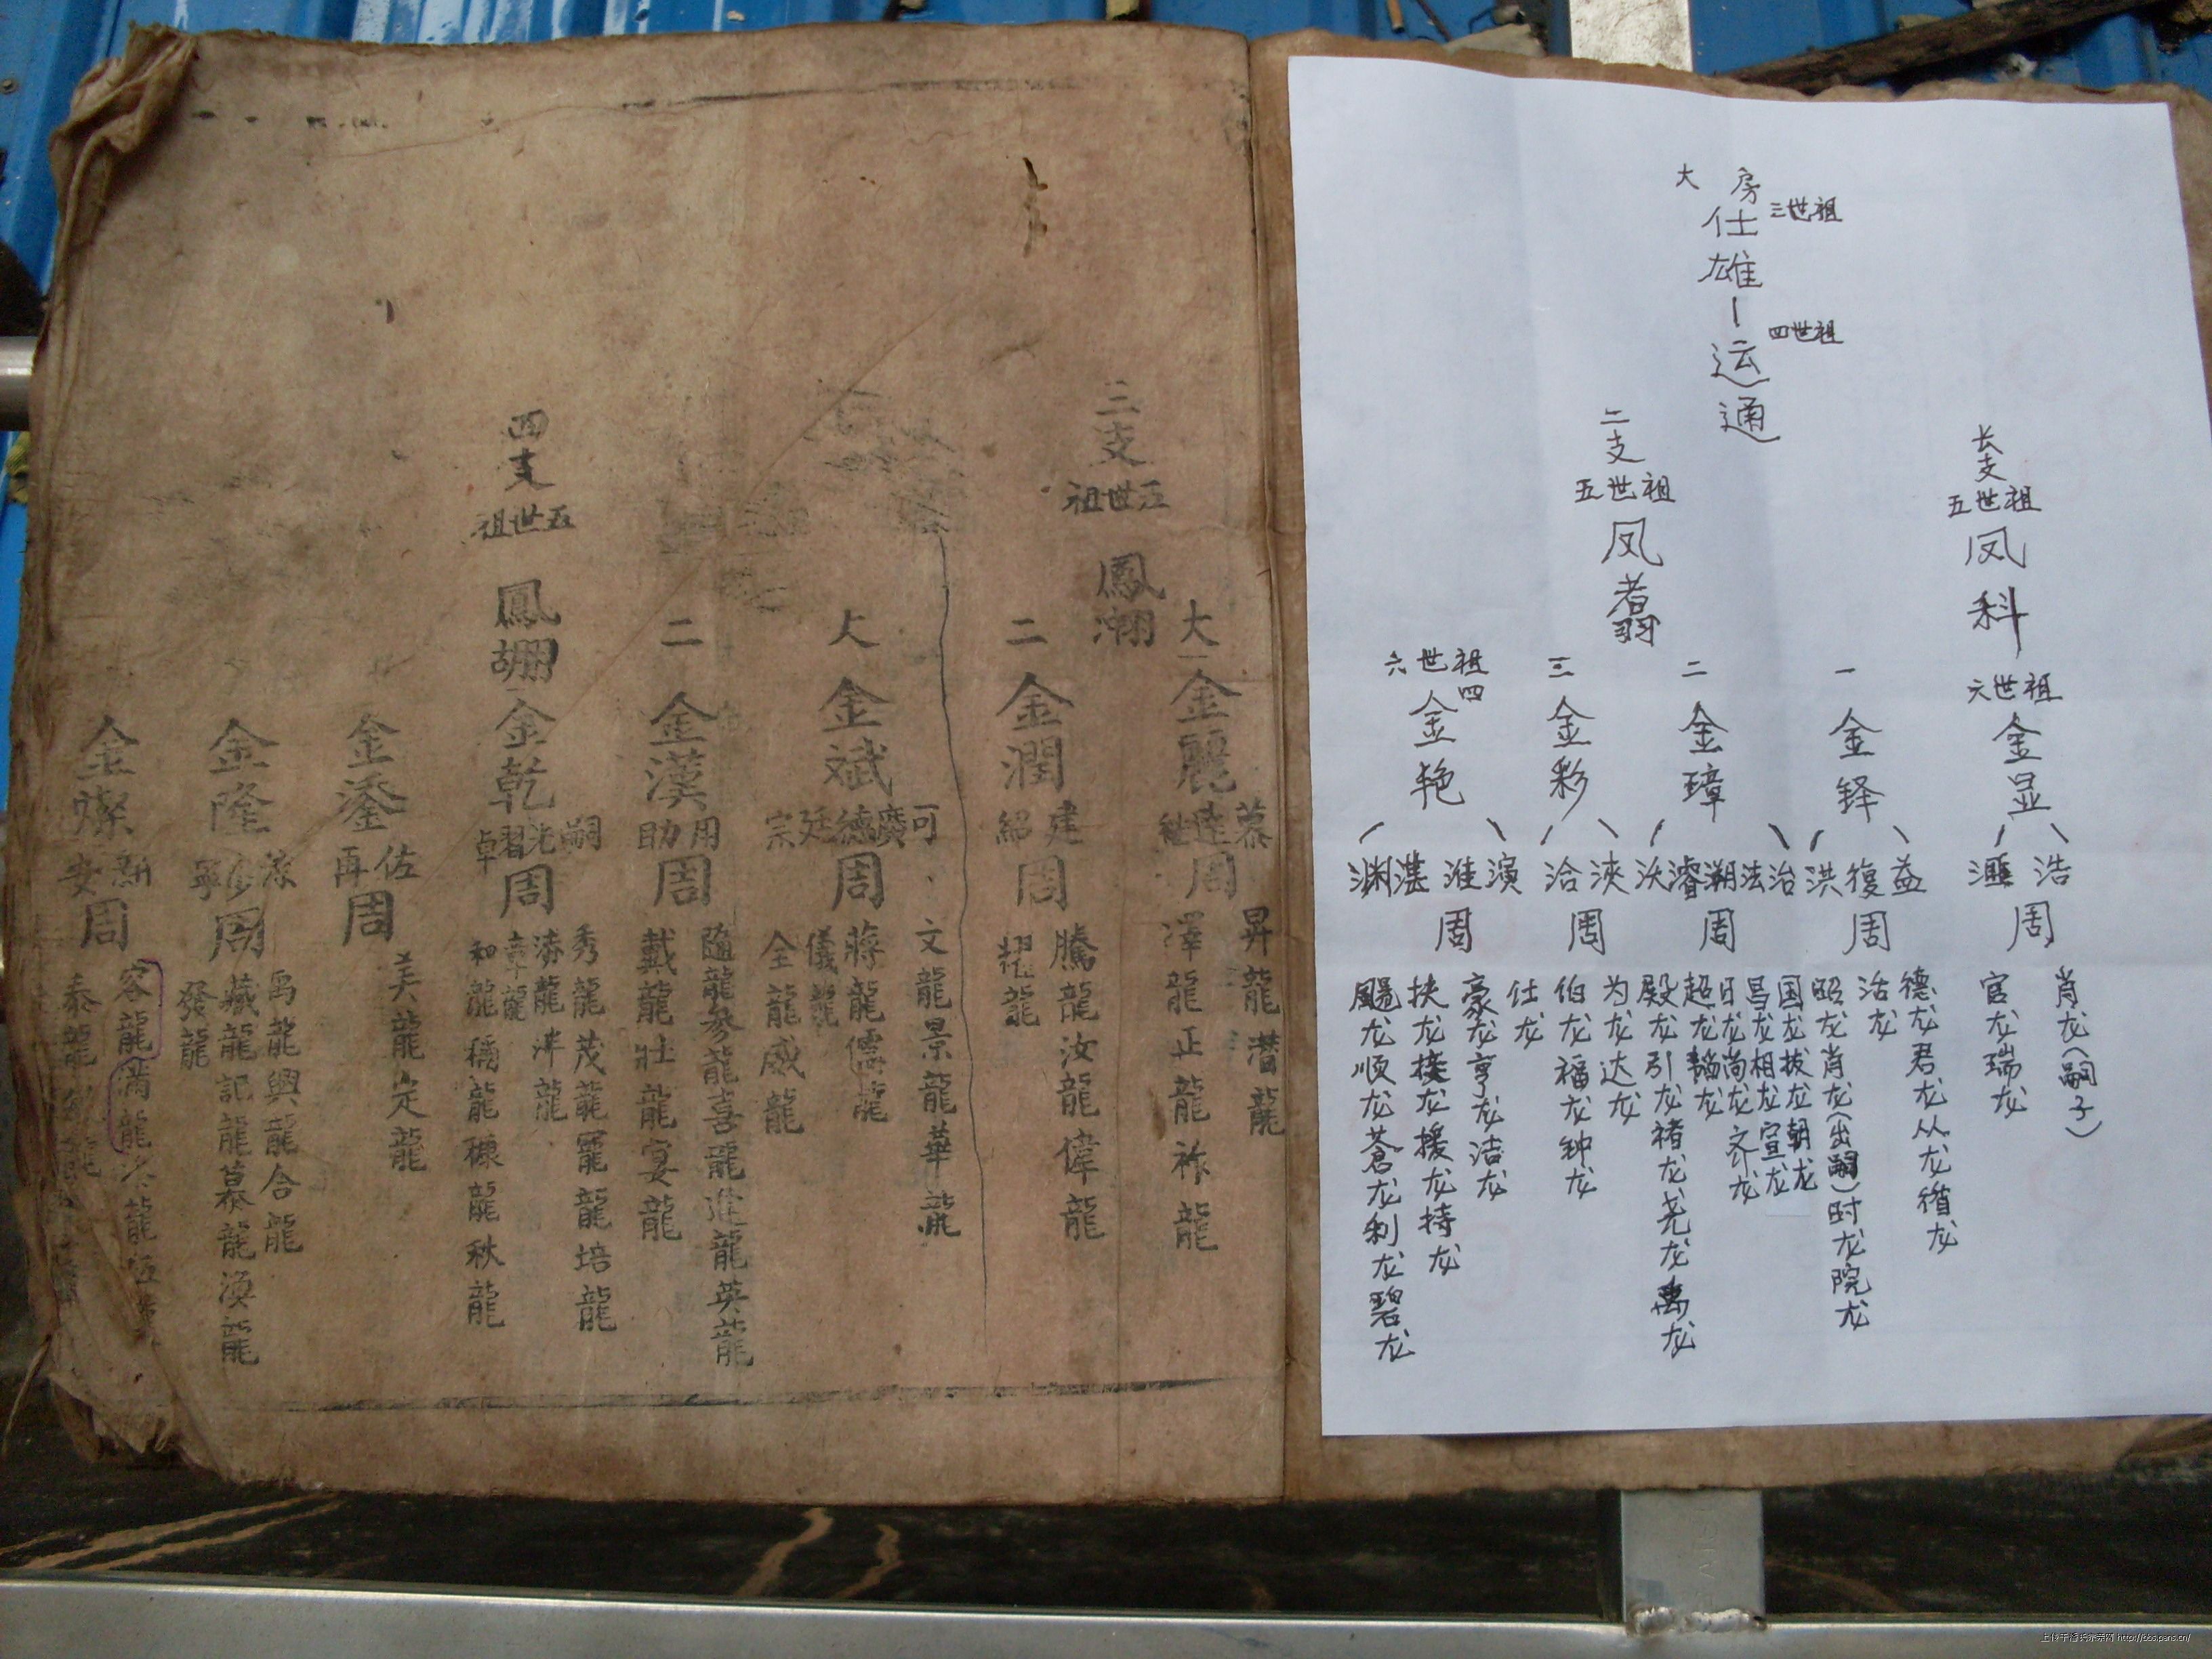 大房
三世祖
仕雄
四世祖
运通
长支
五世祖
凤科
六世祖
金显
浩
周
肖龙(嗣子)
官龙瑞龙
二支
五世祖
凤翥
一
金铎
益復洪
周
德龙君龙从龙循龙
沽龙
昭龙肖龙(出嗣)时龙院龙
二
金璋
治法溯濬沃
周
国龙拔龙朝龙
昌龙相龙宣龙
日龙尚龙齐龙
超龙韜龙
殿龙引龙褚龙尧龙禹龙
三
金彩
浹洽
周
为龙达龙
伯龙福龙钟龙
仕龙
六世祖
四
金艳
演淮湛渊
周
豪龙亨龙洁龙
扶龙接龙援龙持龙
颺龙顺龙蒼龙利龙碧龙
三支
五世祖
鳳潮
大
金麗
慕達継
周
昇龍潜龍
澤龍正龍祚龍
二
金潤
建紹
周
騰龍汝龍偉龍
耀龍
大
金斌
可廣德廷宗
周
文龍景龍華龍
蔣龍儒龍
儀龍
全龍威龍
二
金漢
用助
周
隨龍參龍喜龍進龍英龍
戴龍壯龍宴龍
四支
五世祖
鳳翃
金乾
嗣光習卓
周
秀龍茂龍寵龍培龍
濤龍津龍
章龍
和龍稱龍穗龍秋龍
金鎏
佐再
周
美龍定龍
金隆
周
禹龍興龍合龍
藏龍記龍慕龍渙龍
發龍
金燦
新安
周
容龍滿龍
泰龍
上传于潘氏宗亲网 http://bbs.pans.cn/